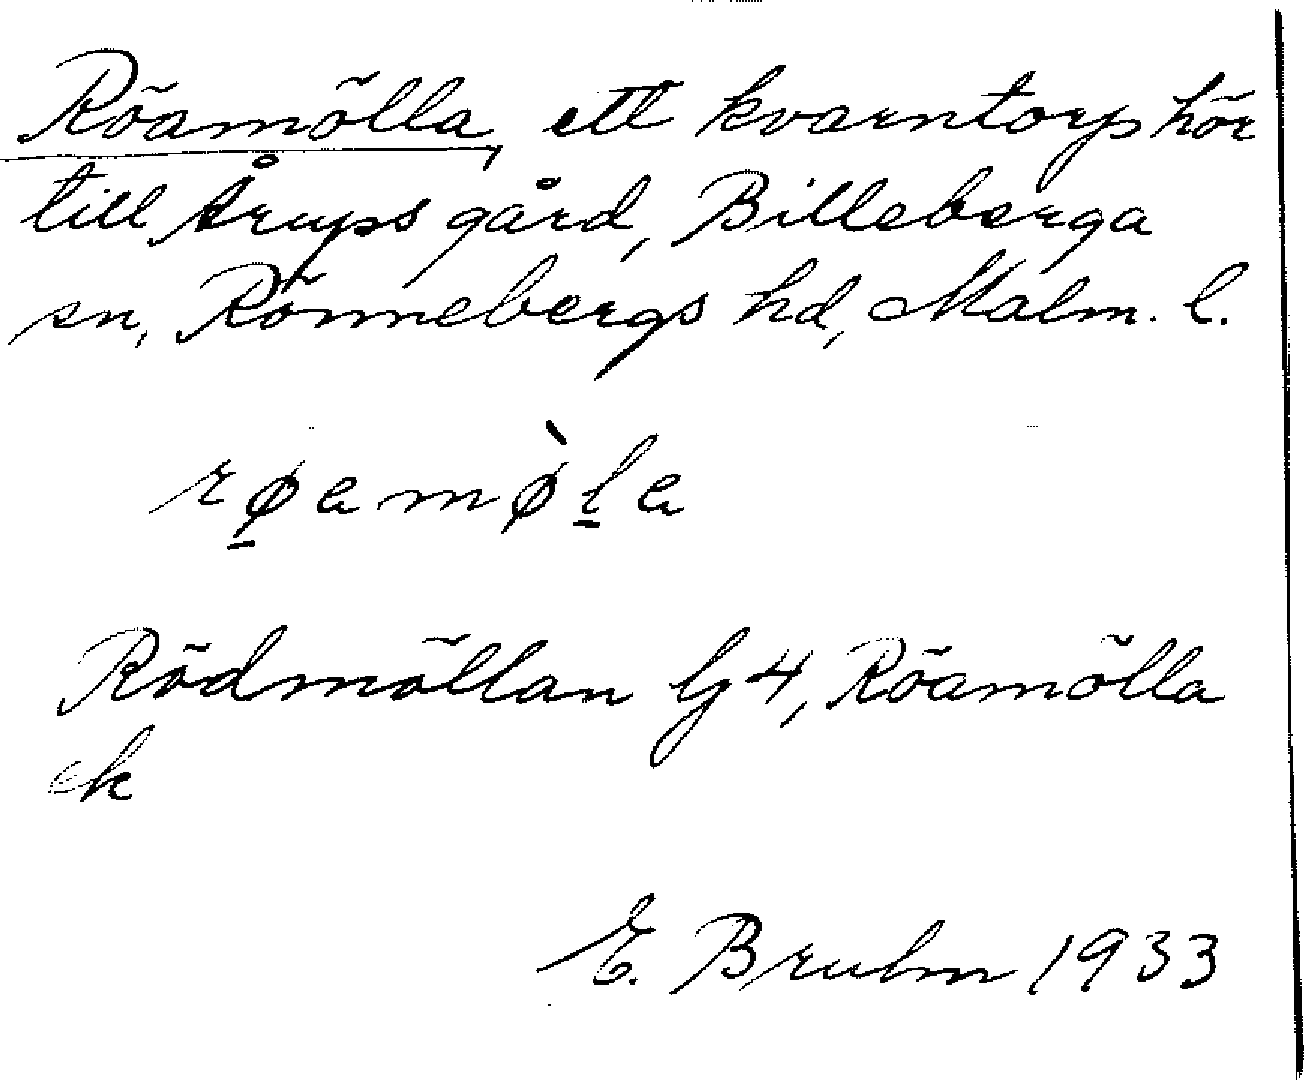 Röamölla, ett kvarntorp hör
till Årups gård, Billeberga
sn, Rönnebergs hd, Malm. l.
røamø̀la
Rödmöllan lj 4, Röamölla
ek
E. Bruhn 1933